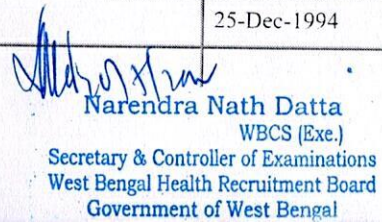 25-Dec-1994
Narendra Nath Datta
WBCS (Exe.)
Secretary & Controller of Examinations
West Bengal Health Recruitment Board
Government of West Bengal